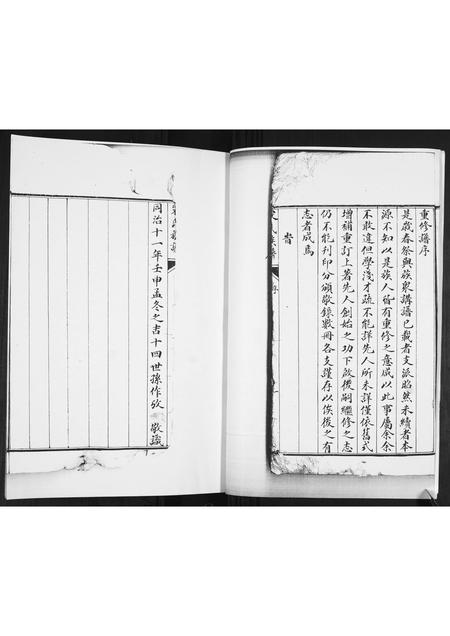 重修譜序
是歲春祭與族衆講譜已載者支派昭然未續者本
源不知以是族人皆有重修之意咸以此事屬余余
不敢違但學淺才疏不能詳先人所未詳僅依舊式
增補重訂上著先人創始之功下啟後嗣繼修之志
仍不能刋印分頒敬錄數冊各支謹存以俟後之有
志者成焉
旹
同治十一年壬申孟冬之吉十四世孫作
敬識